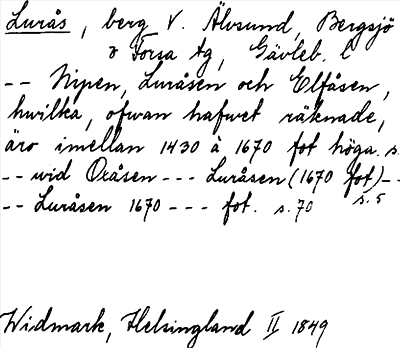 Lurås, berg V. Älvsund, Bergsjö
o Forsa tg, Gävleb. l
-- Nipen, Luråsen och Elfåsen,
hwilka, ofwan hafwet räknade,
äro imellan 1430 à 1670 fot höga. s.
-- wid Oråsen --- Luråsen (1670 fot) -- s. 5
-- Luråsen 1670 --- fot. s. 70
Widmark, Helsingland II 1849